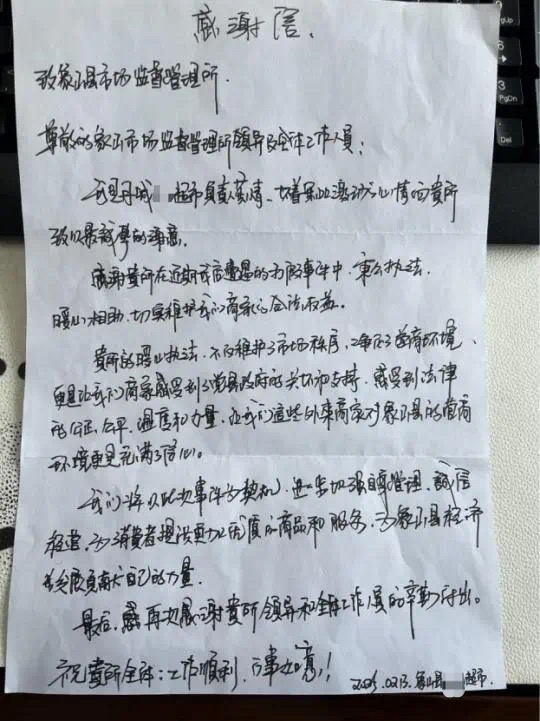 感谢信.
致象山县市场监督管理所.
尊敬的象山市场监督管理所领导及全体工作人员:
我是丹城 超市负责人 怀着无比激动的心情向贵所
致以最诚挚的谢意.
感谢贵所在近期我店遭遇的打假事件中,秉公执法.
暖心相助.切实维护我们商家的合法权益.
贵所的暖心执法.不仅维护了市场秩序,净化了营商环境、
更是让我们商家感受到了象山县政府的关怀和支持,感受到法律
的公正、公平、温度和力量.让我们这些外来商家对象山县的营商
环境更是充满了信心。
我们将以此次事件为契机,进一步加强自审管理.诚信
经营.为消费者提供更加优质的商品和服务.为象山县经济
发展贡献自己的力量.
最后,感再次感谢贵所领导和全体工作人员的辛勤付出。
祝贵所全体:工作顺利,万事如意,!
2025.02.13.象山县 超市.
PgUp
3
PgDn
Del